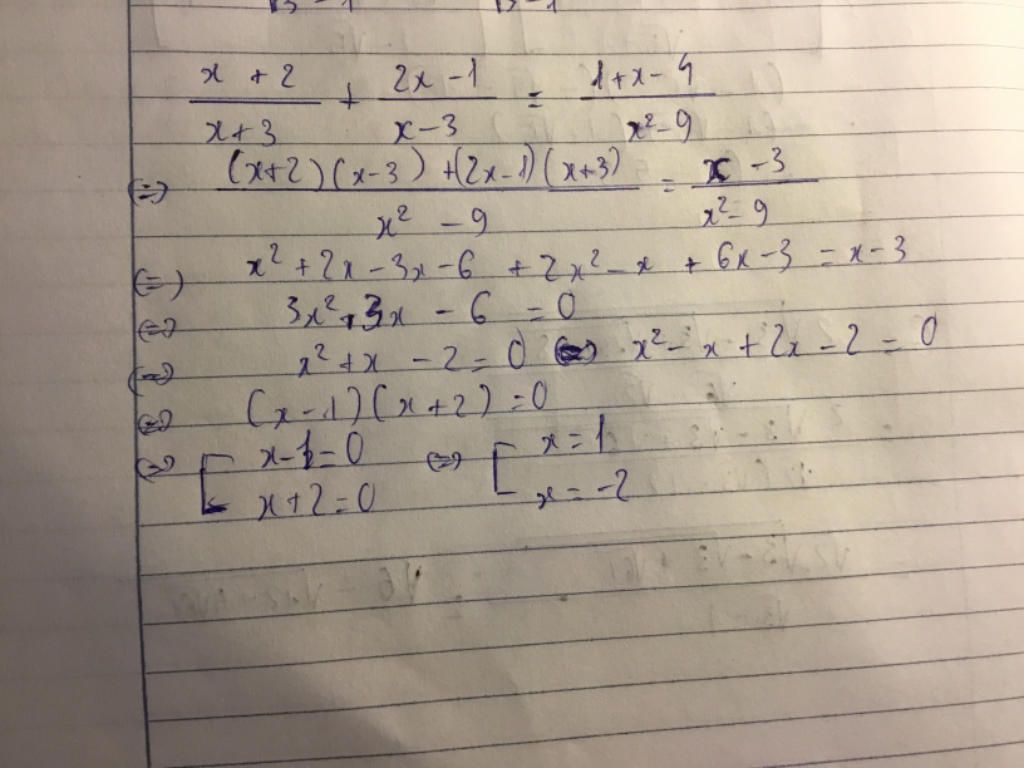 √3 - 1 √3 - 1
(x + 2)/(x + 3) + (2x - 1)/(x - 3) = (1 + x - 4)/(x² - 9)
(=) ((x+2)(x-3) + (2x-1)(x+3))/(x² - 9) = (x - 3)/(x² - 9)
(=) x² + 2x - 3x - 6 + 2x² - x + 6x - 3 = x - 3
(=) 3x² + 3x - 6 = 0
(=) x² + x - 2 = 0 (=) x² - x + 2x - 2 = 0
(=) (x - 1)(x + 2) = 0
(=) [ x - 1 = 0 (=) [ x = 1
x + 2 = 0 x = -2